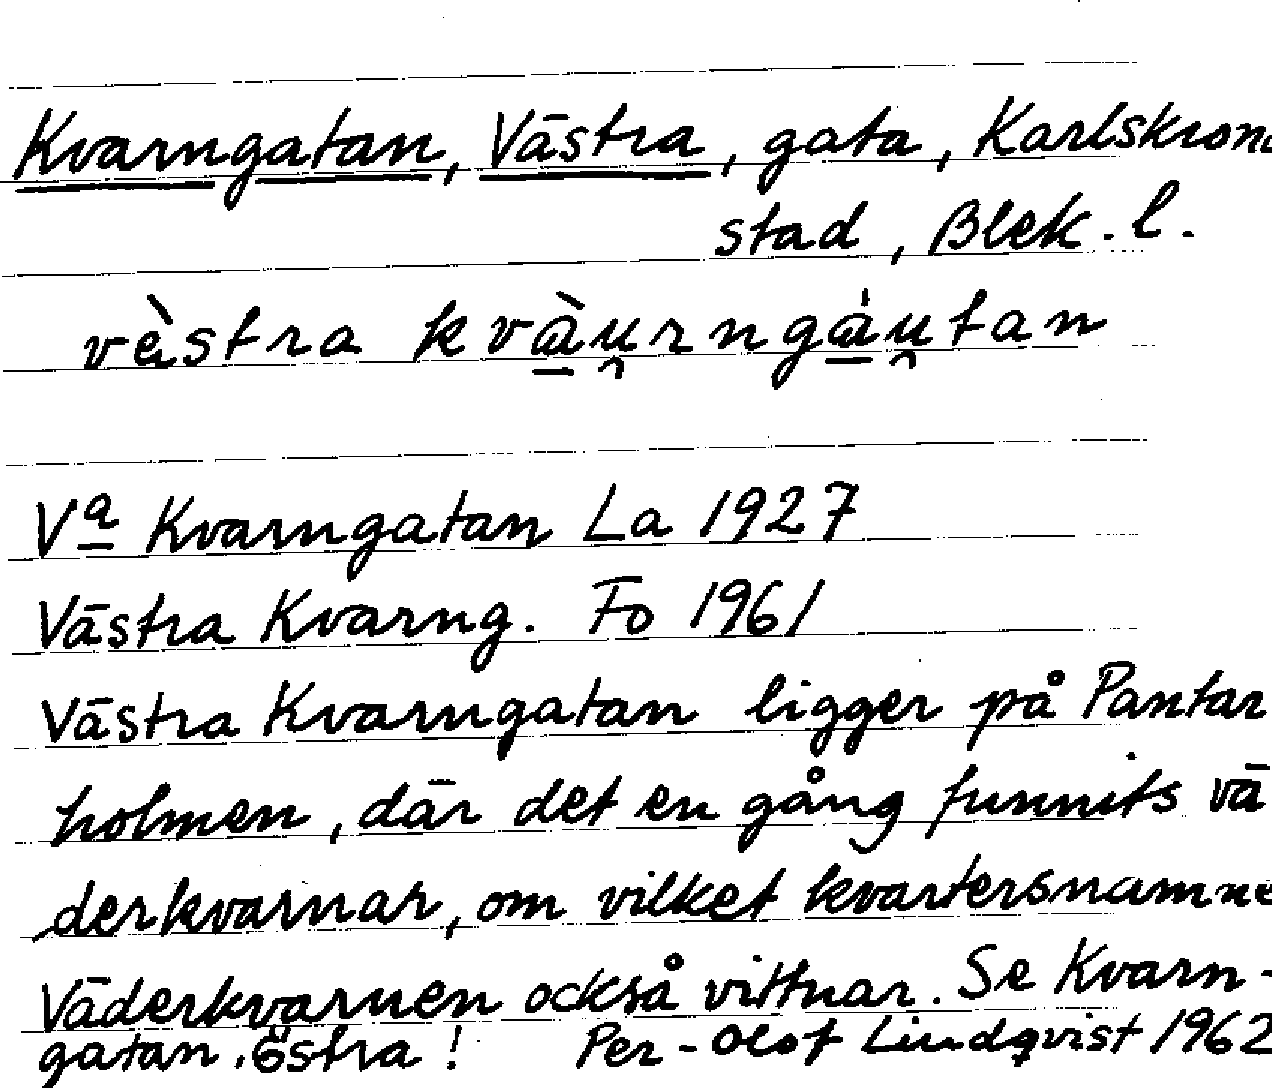 Kvarngatan, Västra, gata, Karlskrona
stad, Blek. l.
vèstra kvàu̯rngáu̯tan
Va Kvarngatan La 1927
Västra Kvarng. Fo 1961
Västra Kvarngatan ligger på Pantar
holmen, där det en gång funnits vä
derkvarnar, om vilket kvartersnamne
Väderkvarnen också vittnar. Se Kvarn-
gatan, Östra! Per-Olof Lindqvist 1962